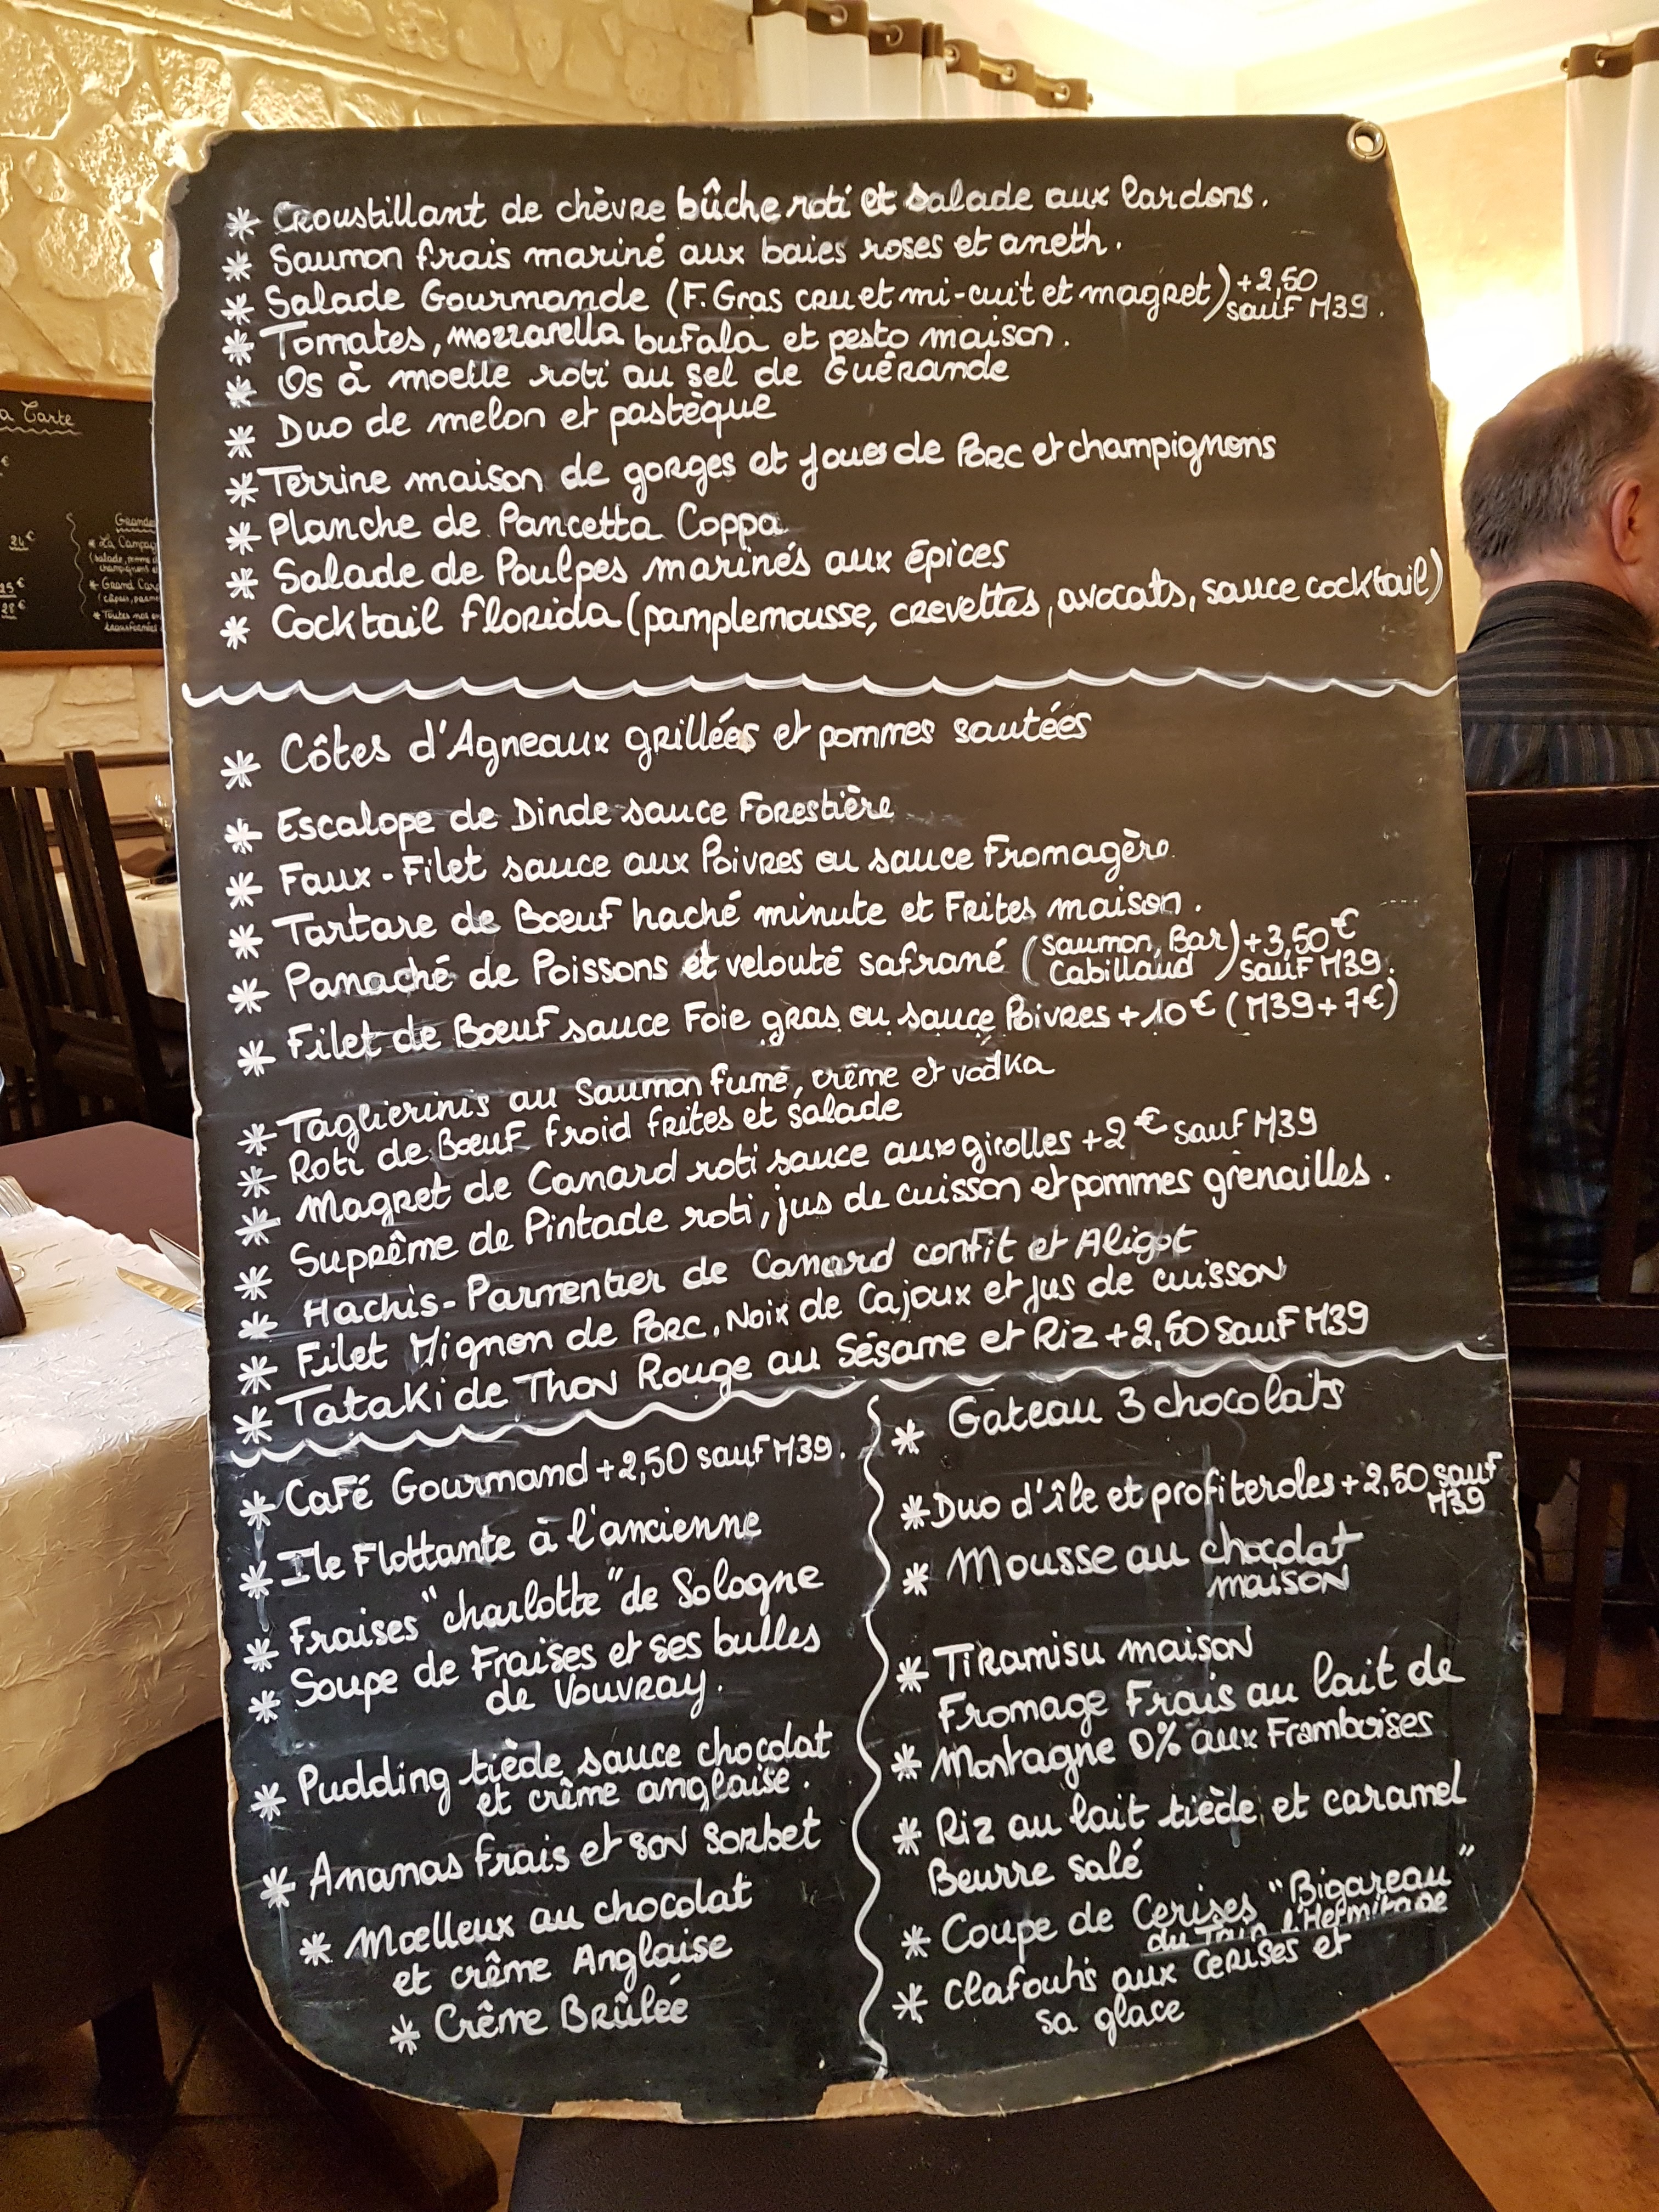 * Croustillant de chèvre bûche roti et salade aux lardons.
* Saumon frais mariné aux baies roses et aneth.
* Salade Gourmande (F. Gras cru et mi-cuit et magret) +2,50
sauf M39.
* Tomates, mozzarella bufala et pesto maison.
* Os à moelle roti au sel de Guérande
* Duo de melon et pastèque
* Terrine maison de gorges et joues de Porc et champignons
* Planche de Pancetta Coppa
* Salade de Poulpes marinés aux épices
* Cocktail Florida (pamplemousse, crevettes, avocats, sauce cocktail)
* Côtes d'Agneaux grillées et pommes sautées
* Escalope de Dinde sauce Forestière
* Faux-Filet sauce aux Poivres ou sauce Fromagère
* Tartare de Bœuf haché minute et Frites maison.
* Panaché de Poissons et velouté safrané (Saumon, Bar) +3,50€
Cabillaud sauf M39.
* Filet de Bœuf sauce Foie gras ou sauce Poivres +10€ (M39+7€)
* Taglierinis au Saumon fumé, crème et vodka
* Roti de Bœuf froid frites et salade
* Magret de Canard roti sauce aux girolles +2€ sauf M39
* Suprême de Pintade roti, jus de cuisson et pommes grenailles.
* Hachis-Parmentier de Canard confit et Aligot
* Filet Mignon de Porc, Noix de Cajoux et jus de cuisson
* Tataki de Thon Rouge au Sésame et Riz +2,50 sauf M39
* Café Gourmand +2,50 sauf M39.
* Ile Flottante à l'ancienne
* Fraises "charlotte" de Sologne
* Soupe de Fraises et ses bulles
de Vouvray.
* Pudding tiède sauce chocolat
et crème anglaise.
* Ananas frais et son sorbet
* Mœlleux au chocolat
et crème Anglaise
* Crème Brûlée
* Gateau 3 chocolats
* Duo d'île et profiteroles +2,50 sauf
M39
* Mousse au chocolat
maison
* Tiramisu maison
Fromage Frais au lait de
* Montagne 0% aux Framboises
* Riz au lait tiède et caramel
Beurre salé
* Coupe de Cerises "Bigareau"
du Tain l'Hermitage
* Clafoutis aux Cerises et
sa glace
a Carte
€
24€
25€
28€
Grande
* La Campa
(salade, pomme d
champignons e
* Grand Car
* Toutes nos